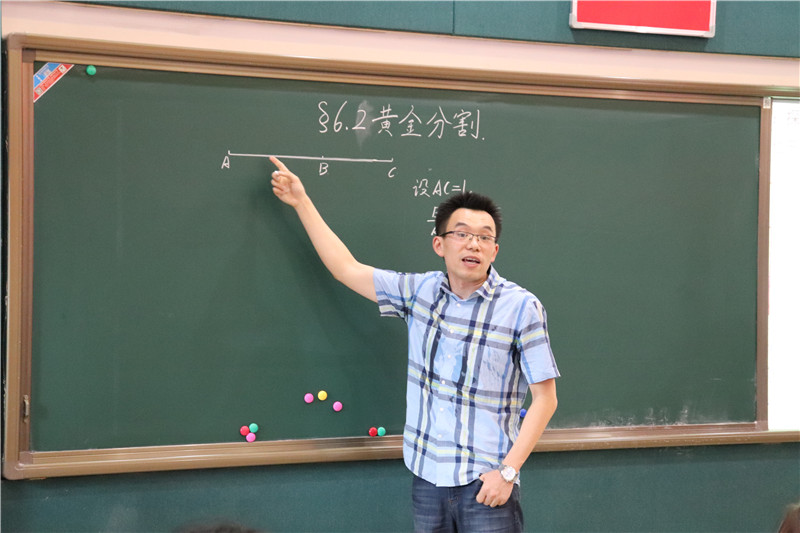 §6.2 黄金分割.
A B C
设AC=1.